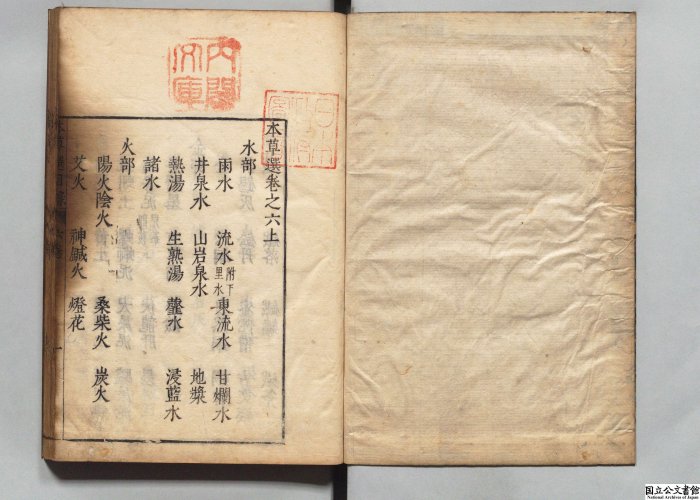 本草選卷之六上
水部
雨水 流水 附下里水 東流水 甘爛水
井泉水 山岩泉水 地漿
熱湯 生熟湯 虀水 浸藍水
諸水
火部
陽火陰火 桑柴火 炭火
艾火 神鍼火 燈花
一
内閣文庫
国立公文書館
National Archives of Japan